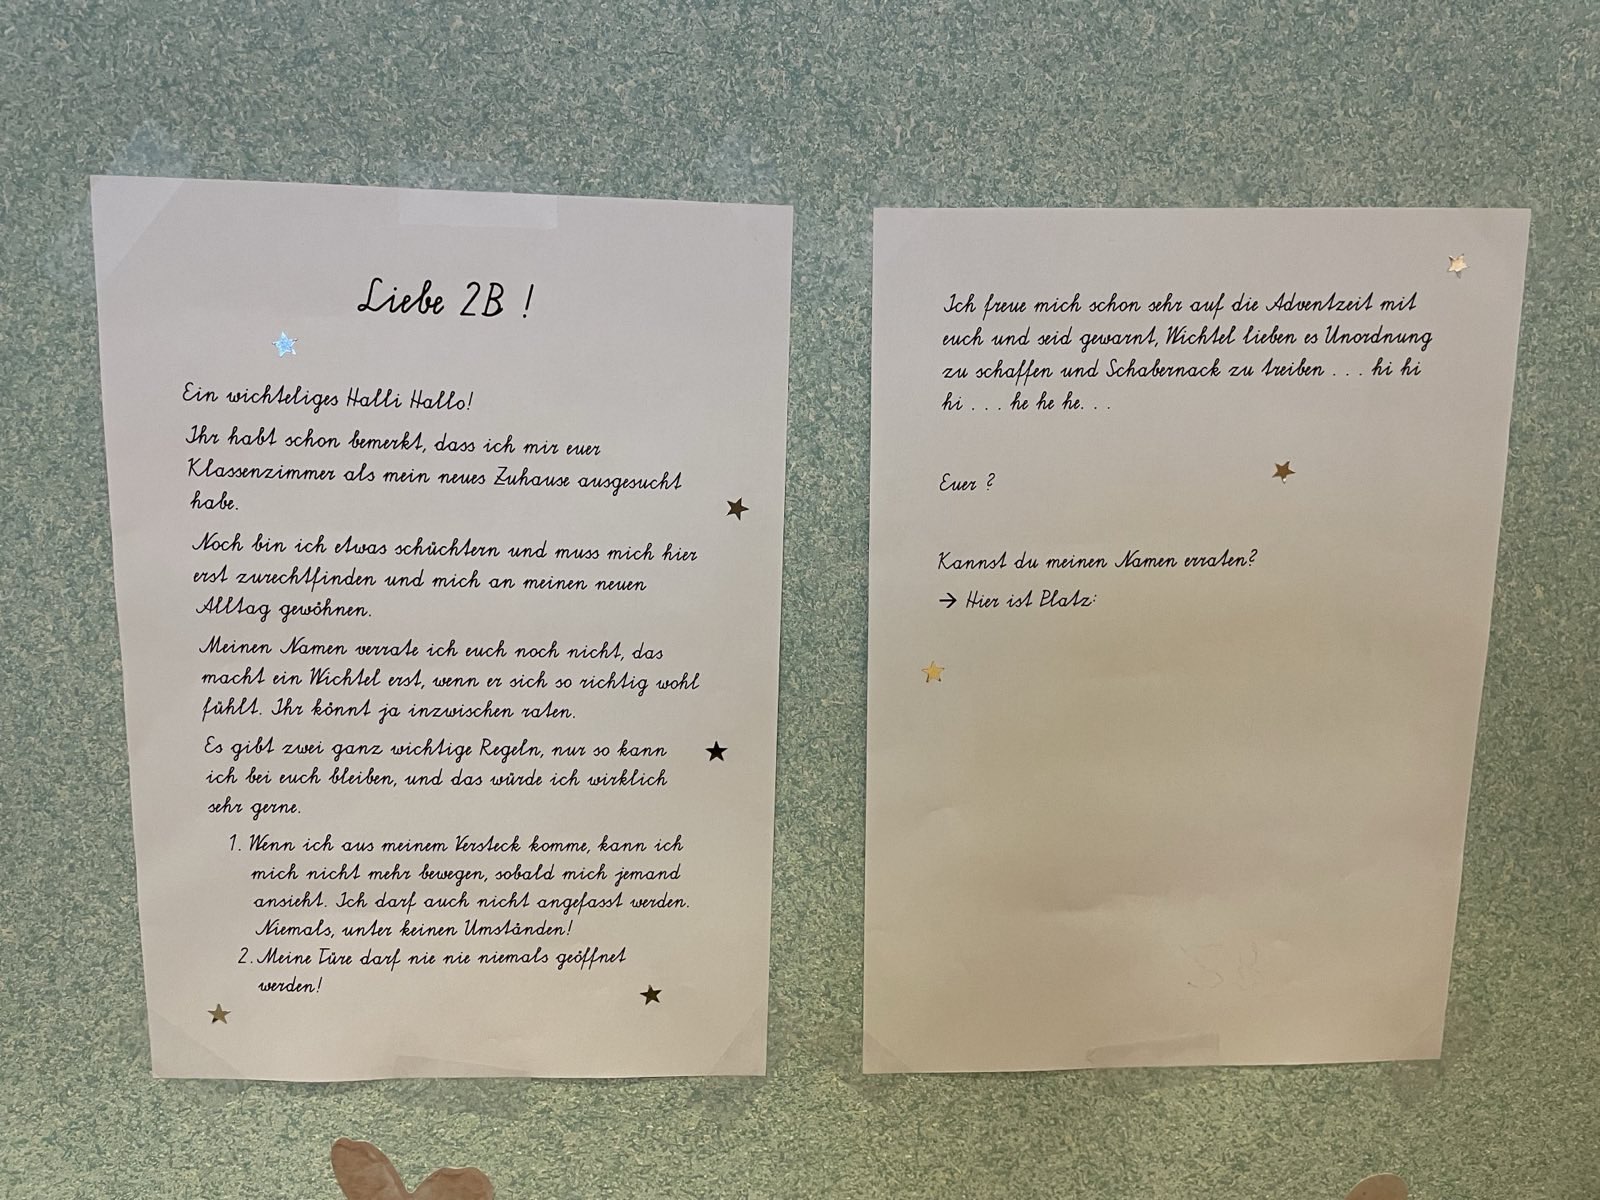 Liebe 2B !
Ein wichteliges Halli Hallo!
Ihr habt schon bemerkt, dass ich mir euer
Klassenzimmer als mein neues Zuhause ausgesucht
habe.
Noch bin ich etwas schüchtern und muss mich hier
erst zurechtfinden und mich an meinen neuen
Alltag gewöhnen.
Meinen Namen verrate ich euch noch nicht, das
macht ein Wichtel erst, wenn er sich so richtig wohl
fühlt. Ihr könnt ja inzwischen raten.
Es gibt zwei ganz wichtige Regeln, nur so kann
ich bei euch bleiben, und das würde ich wirklich
sehr gerne.
1. Wenn ich aus meinem Versteck komme, kann ich
mich nicht mehr bewegen, sobald mich jemand
ansieht. Ich darf auch nicht angefasst werden.
Niemals, unter keinen Umständen!
2. Meine Türe darf nie nie niemals geöffnet
werden!
Ich freue mich schon sehr auf die Adventzeit mit
euch und seid gewarnt, Wichtel lieben es Unordnung
zu schaffen und Schabernack zu treiben . . . hi hi
hi . . . he he he. . .
Euer ?
Kannst du meinen Namen erraten?
→ Hier ist Platz: